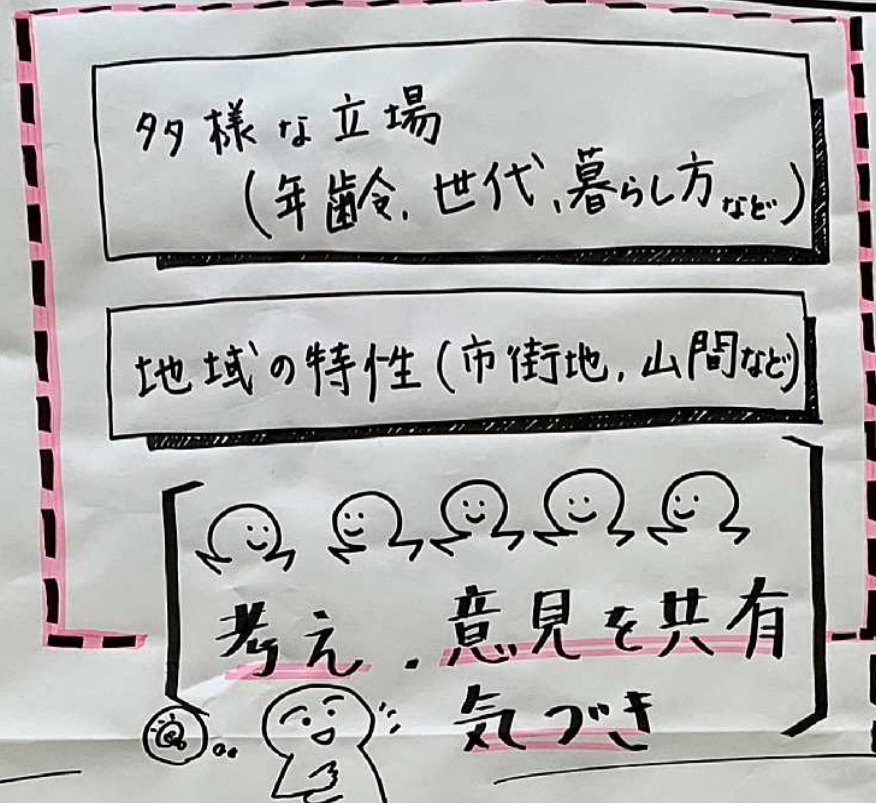 多様な立場
(年齢、世代、暮らし方など)
地域の特性(市街地、山間など)
考え・意見を共有
気づき